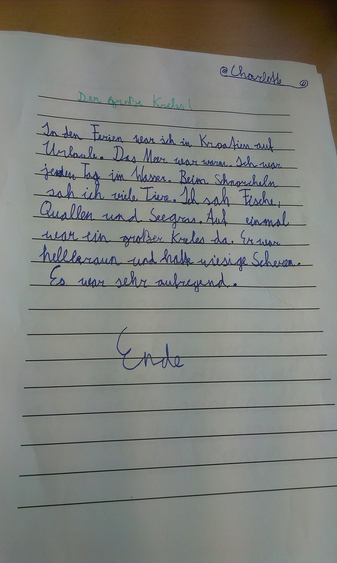 @Charlotte
Der große Krebs!
In den Ferien war ich in Kroatien auf
Urlaub. Das Mer war warm. Ich war
jeden Tag im Wasser. Beim Schnorcheln
sah ich viele Tiere. Ich sah Fische,
Quallen und Seegras. Auf einmal
war ein großer Krebs da. Er war
hellbraun und hatte riesige Scheren.
Es war sehr aufregend.
Ende